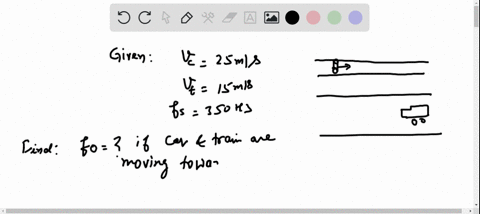 Given: Vc = 25 m/s
Vt = 15 m/s
fs = 350 Hz
Find: fo = ? if car & train are
moving towa